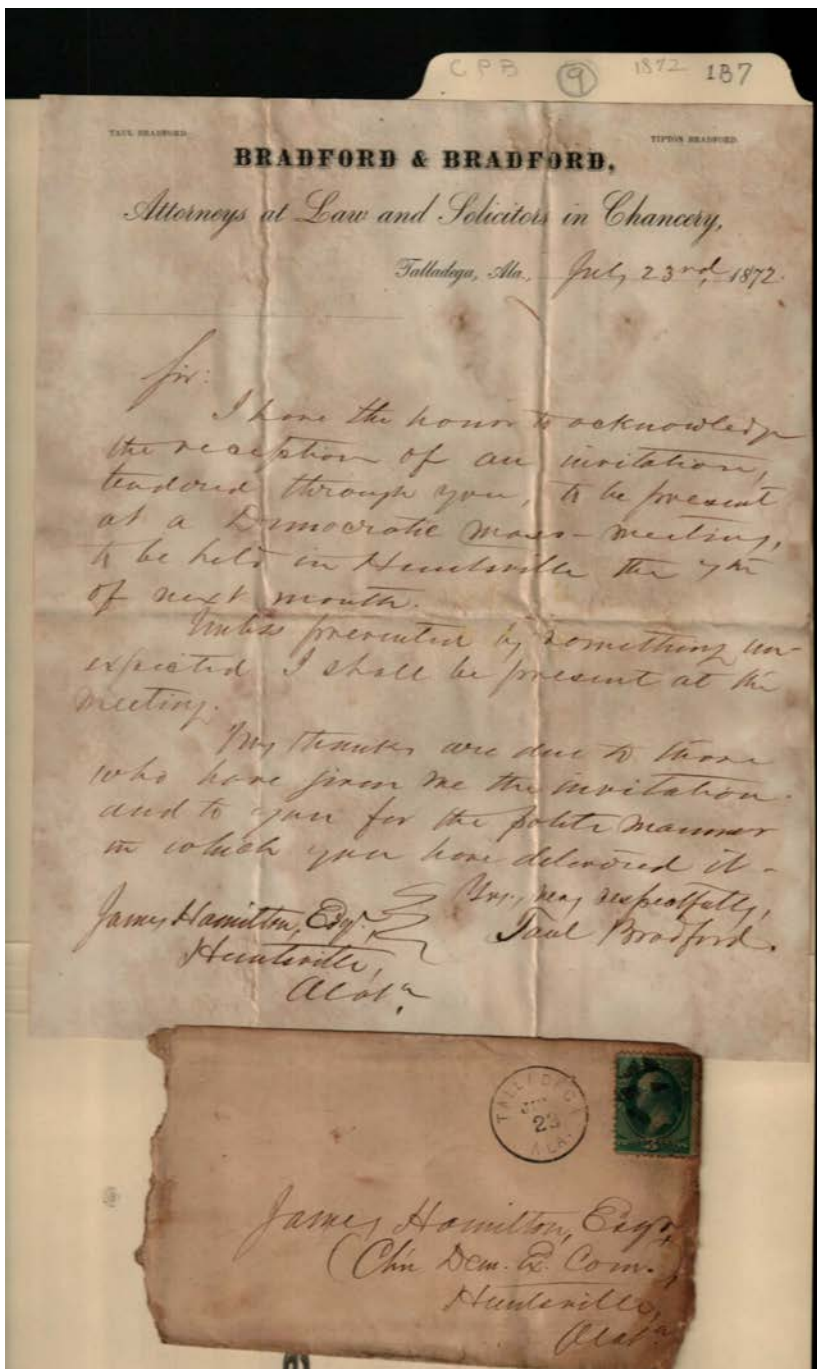 CPB 9 1872 187
TAUL BRADFORD. TIPTON BRADFORD.
BRADFORD & BRADFORD,
Attorneys at Law and Solicitors in Chancery,
Talladega, Ala., July 23rd, 1872.
Sir:
I have the honor to acknowledge
the reception of an invitation,
tendered through you, to be present
at a Democratic mass-meeting,
to be held in Huntsville the 7th
of next month.
Unless prevented by something un-
expected I shall be present at the
meeting.
My thanks are due to those
who have given me the invitation
and to you for the polite manner
in which you have delivered it-
Yrs. very respectfully,
Taul Bradford.
James Hamilton, Esqr.
Huntsville,
Alaba
TALLADEGA
23
ALA.
James Hamilton, Esqr,
(Chn Dem. Ex. Com.,
Huntsville,
Alaba